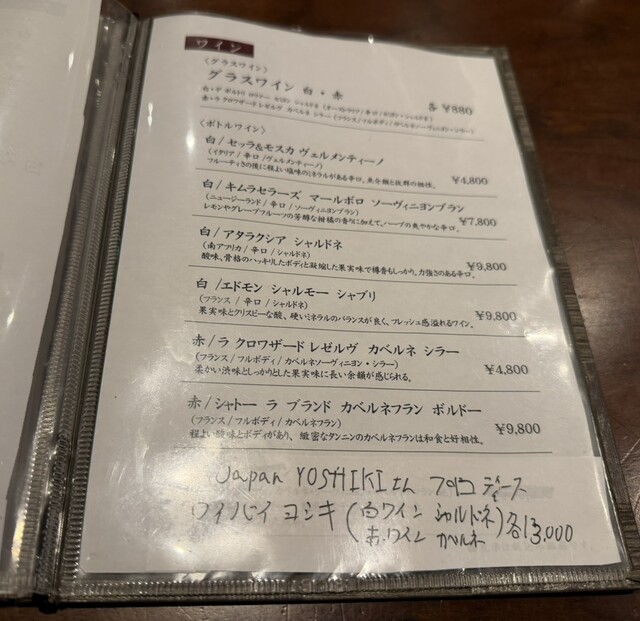 ワイン
〈グラスワイン〉
グラスワイン 白・赤 各 ¥880
赤・ラ クロワザード レゼルヴ カベルネ シラー (フランス/フルボディ/カベルネソーヴィニヨン・シラー)
〈ボトルワイン〉
白/セッラ&モスカ ヴェルメンティーノ
(イタリア/辛口/ヴェルメンティーノ) ¥4,800
フルーティさの後に程よい塩味のミネラルがある辛口。魚全般と抜群の相性。
白/キムラセラーズ マールボロ ソーヴィニヨンブラン
(ニュージーランド/辛口/ソーヴィニヨンブラン) ¥7,800
レモンやグレープフルーツの芳醇な柑橘の香りに加えて、ハーブの爽やかな辛口。
白/アタラクシア シャルドネ
(南アフリカ/辛口/シャルドネ) ¥9,800
酸味、骨格のハッキリしたボディと凝縮した果実味で樽香もしっかり。力強さのある辛口。
白/エドモン シャルモー シャブリ
(フランス / 辛口 /シャルドネ) ¥9,800
果実味とクリスピーな酸、硬いミネラルのバランスが良く、フレッシュ感溢れるワイン。
赤/ラ クロワザード レゼルヴ カベルネ シラー
(フランス/フルボディ/カベルネソーヴィニヨン・シラー) ¥4,800
柔かい渋味としっかりとした果実味に長い余韻が感じられる。
赤/シャトー ラ ブランド カベルネフラン ボルドー
(フランス/フルボディ/カベルネフラン) ¥9,800
程よい酸味とボディがあり、緻密なタンニンのカベルネフランは和食と好相性。
X Japan YOSHIKIさん プロデュース
ワイバイヨシキ (白ワイン シャルドネ
赤ワイン カベルネ) 各13,000